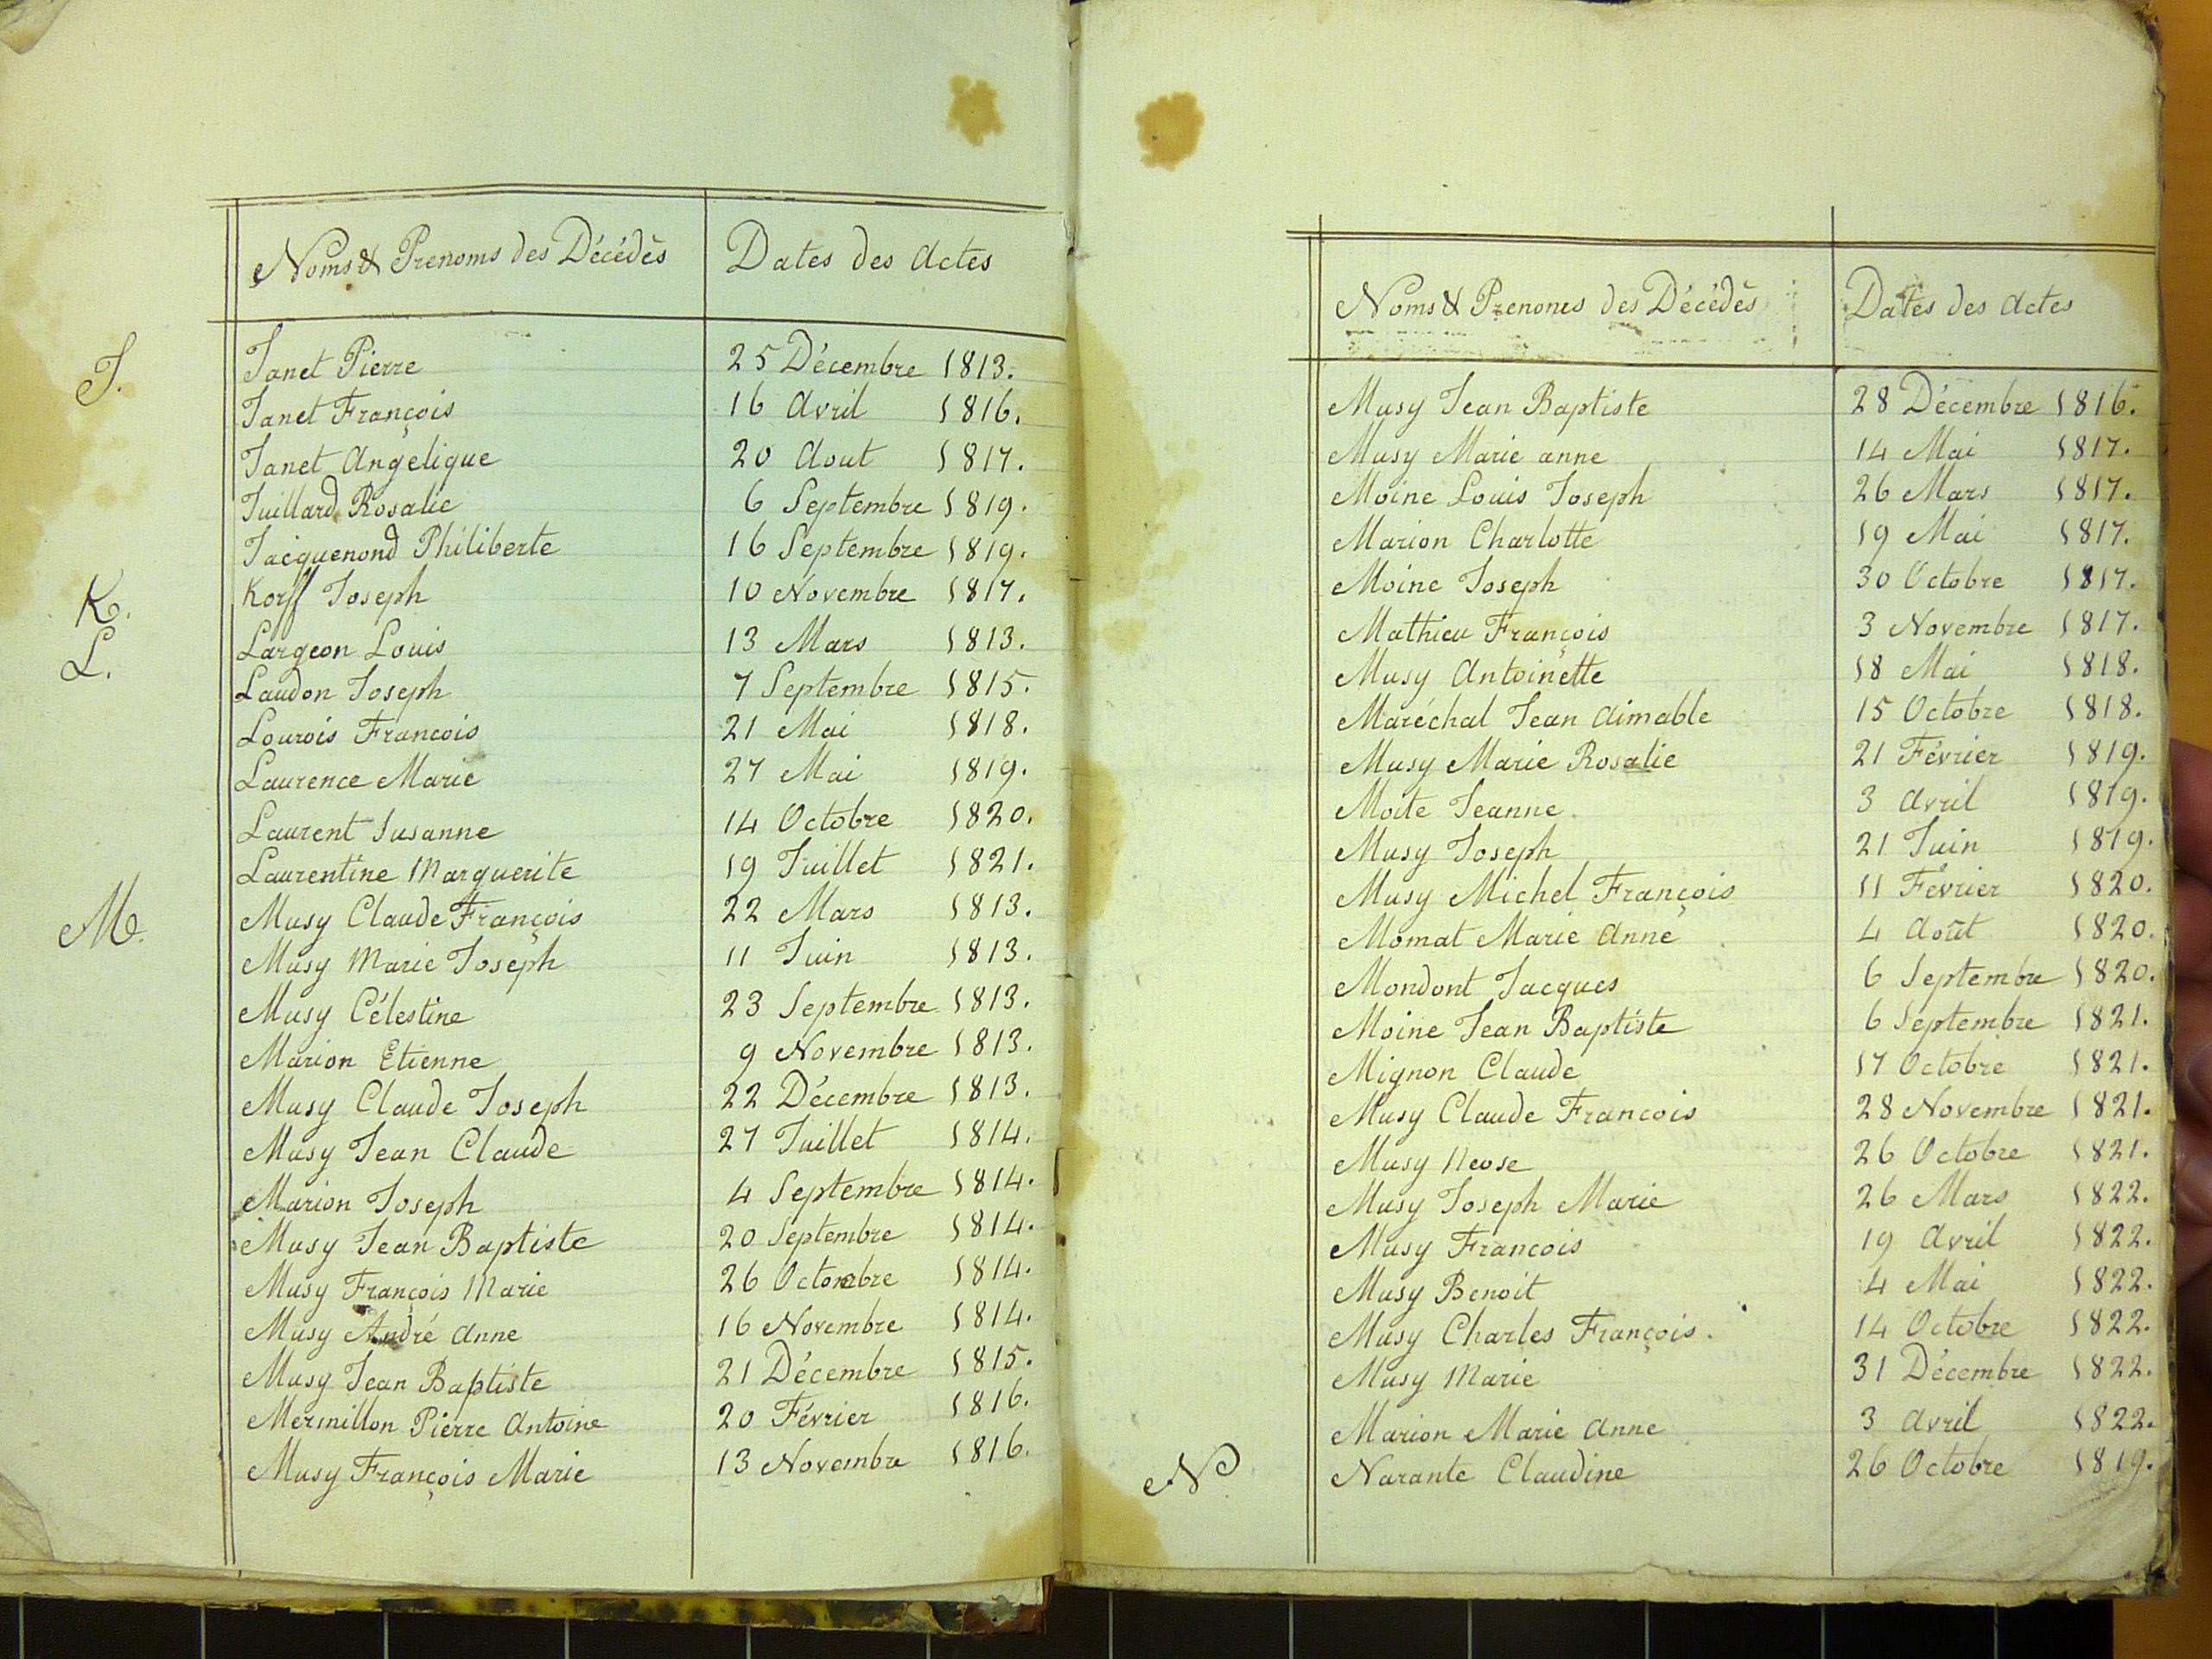 Noms & Prenoms des Décédés Dates des Actes
J. Janet Pierre 25 Décembre 1813.
Janet François 16 Avril 1816.
Janet Angelique 20 Aout 1817.
Juillard Rosalie 6 Septembre 1819.
Jacquenond Philiberte 16 Septembre 1819.
K. Korff Joseph 10 Novembre 1817.
L. Largeon Louis 13 Mars 1813.
Laudon Joseph 7 Septembre 1815.
Lourois Francois 21 Mai 1818.
Laurence Marie 27 Mai 1819.
Laurent Susanne 14 Octobre 1820.
Laurentine Marguerite 19 Juillet 1821.
M. Musy Claude François 22 Mars 1813.
Musy Marie Joseph 11 Juin 1813.
Musy Célestine 23 Septembre 1813.
Marion Etienne 9 Novembre 1813.
Musy Claude Joseph 22 Décembre 1813.
Musy Jean Claude 27 Juillet 1814.
Marion Joseph 4 Septembre 1814.
Musy Jean Baptiste 20 Septembre 1814.
Musy François Marie 26 1814.
Musy André Anne 16 Novembre 1814.
Musy Jean Baptiste 21 Décembre 1815.
Mermillon Pierre Antoine 20 Février 1816.
Musy François Marie 13 Novembre 1816.
Noms & Prenoms des Décédés Dates des Actes
Musy Jean Baptiste 28 Décembre 1816.
Musy Marie anne 14 Mai 1817.
Moine Louis Joseph 26 Mars 1817.
Marion Charlotte 19 Mai 1817.
Moine Joseph 30 Octobre 1817.
Mathieu François 3 Novembre 1817.
Musy Antoinette 18 Mai 1818.
Maréchal Jean Aimable 15 Octobre 1818.
Musy Marie Rosalie 21 Février 1819.
Moite Jeanne 3 Avril 1819.
Musy Joseph 21 Juin 1819.
Musy Michel François 11 Février 1820.
Momat Marie Anne 4 Août 1820.
Mondont Jacques 6 Septembre 1820.
Moine Jean Baptiste 6 Septembre 1821.
Mignon Claude 17 Octobre 1821.
Musy Claude Francois 28 Novembre 1821.
Musy 26 Octobre 1821.
Musy Joseph Marie 26 Mars 1822.
Musy Francois 19 Avril 1822.
Musy Benoit 4 Mai 1822.
Musy Charles François. 14 Octobre 1822.
Musy Marie 31 Décembre 1822.
Marion Marie Anne 3 Avril 1822.
N Narante Claudine 26 Octobre 1819.